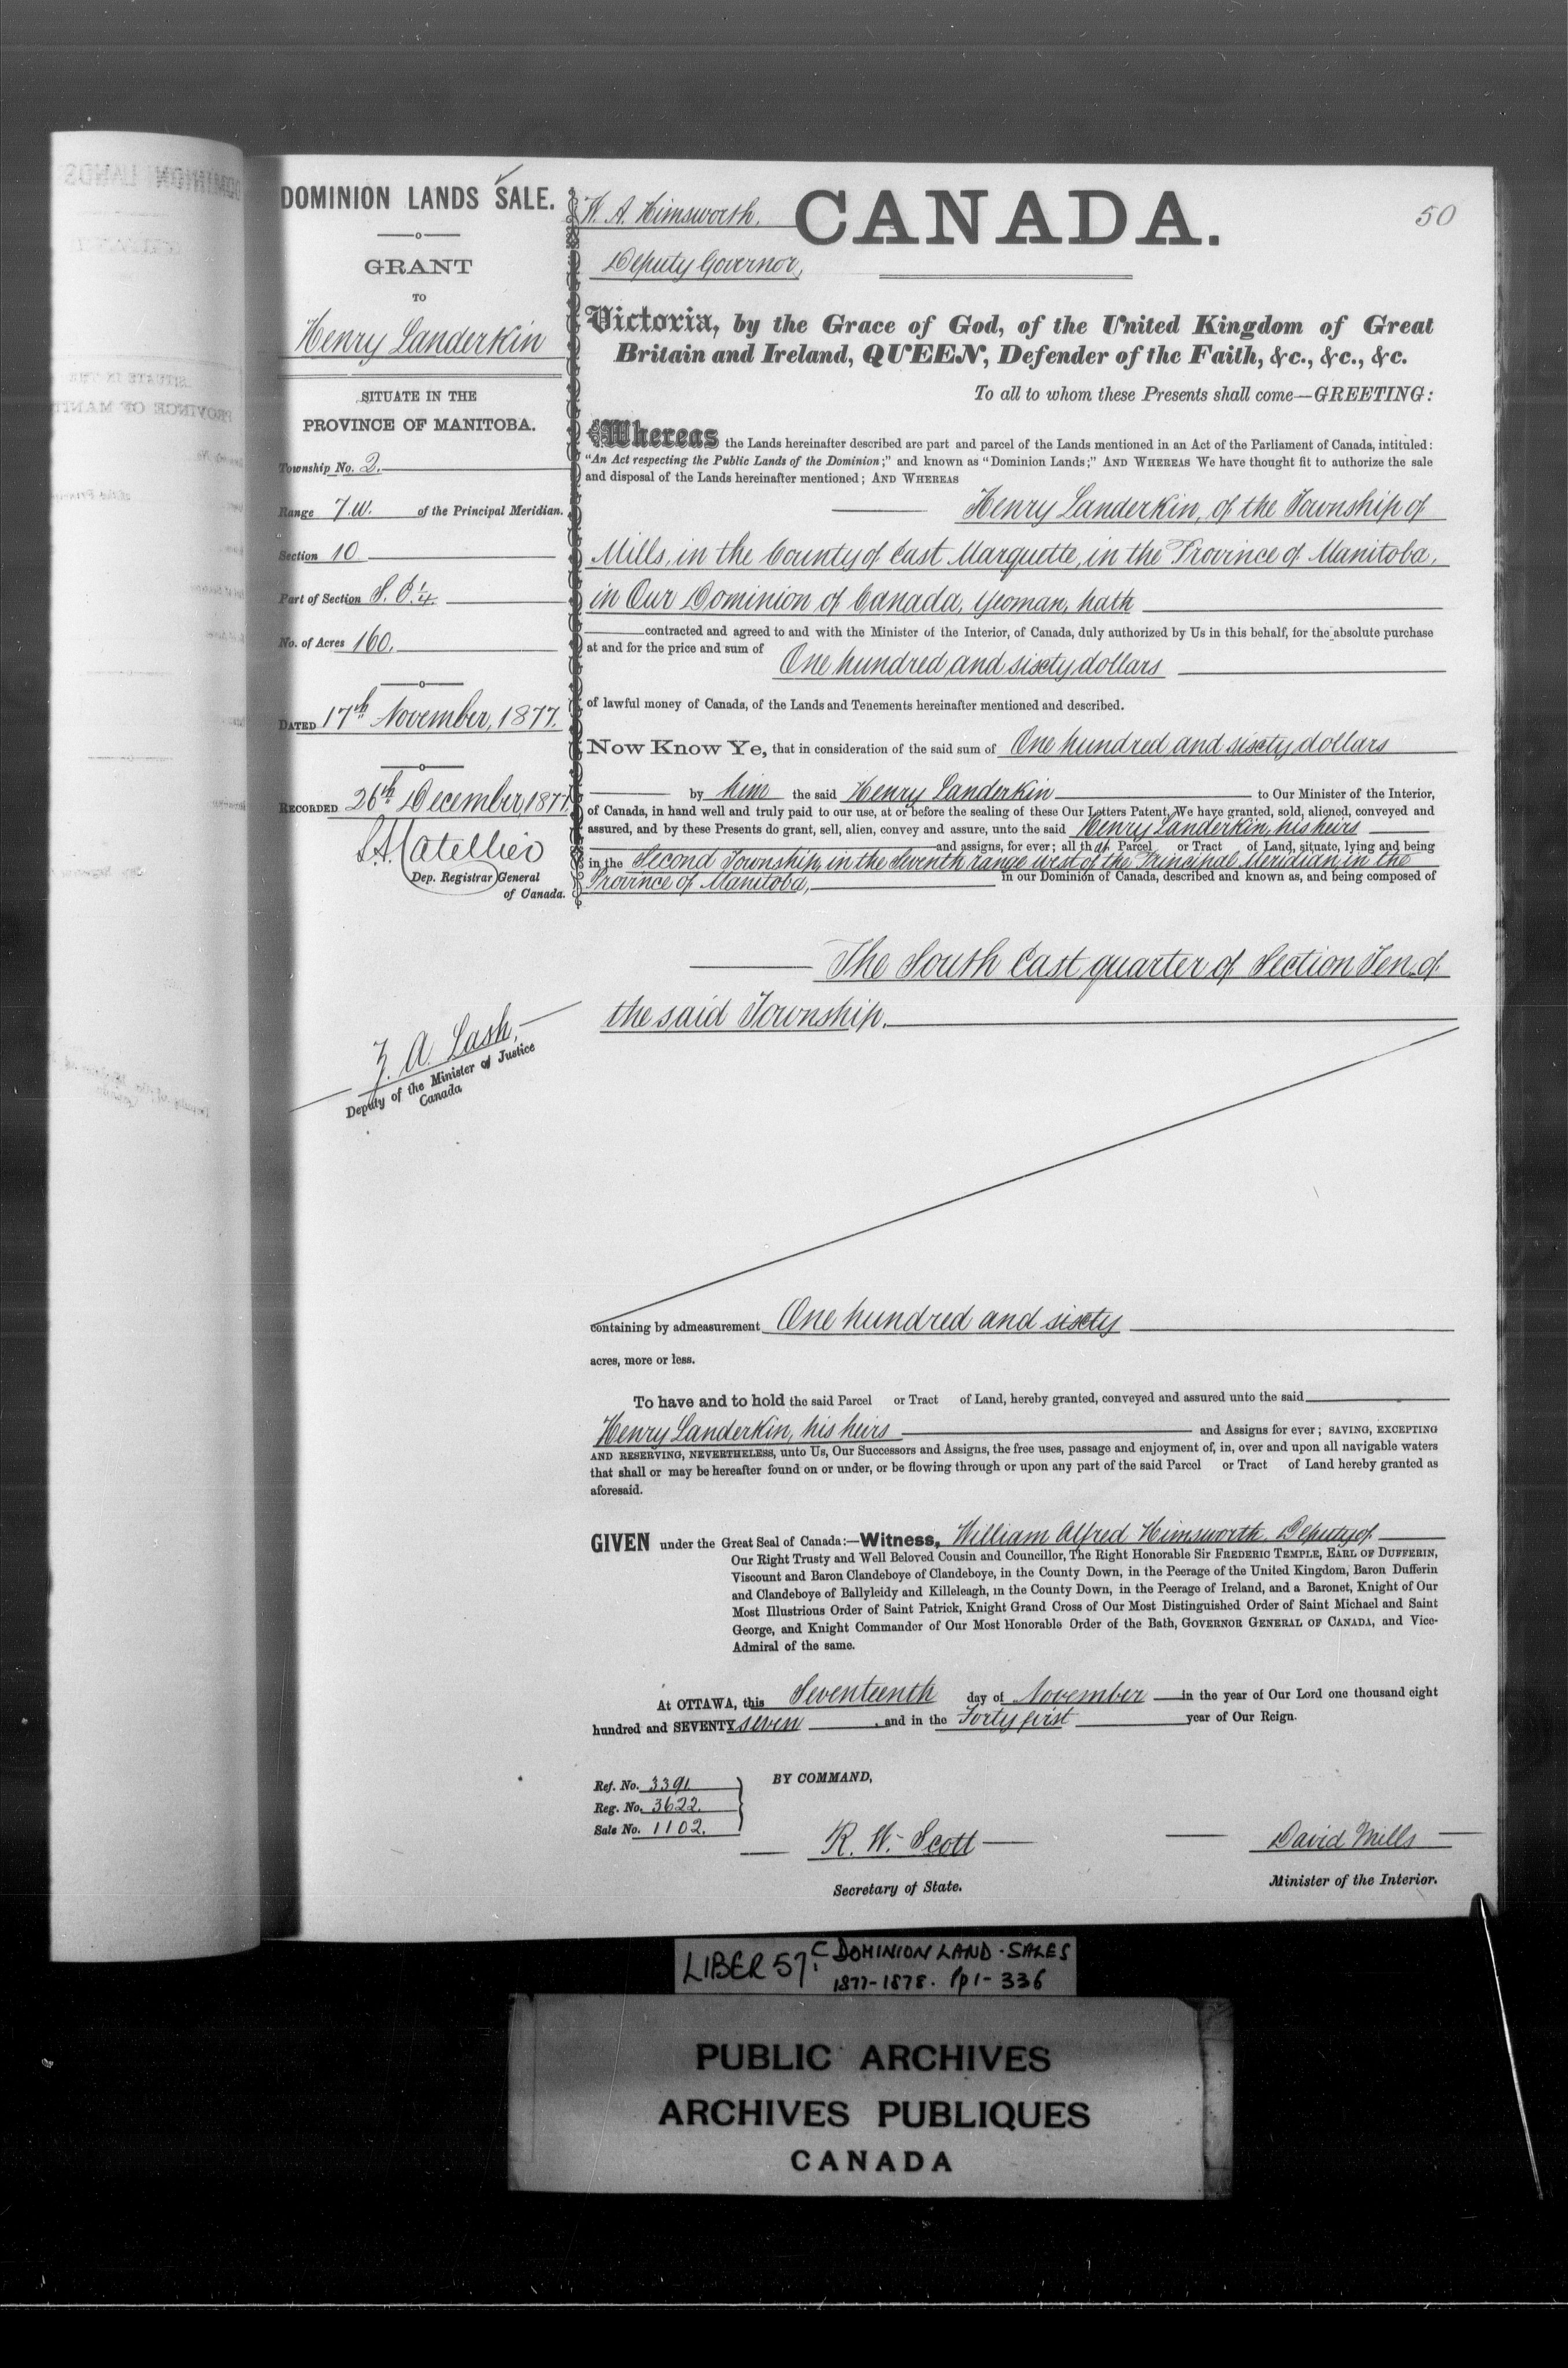 DOMINION LANDS SALE.
GRANT
TO
Henry Landerkin
SITUATE IN THE
PROVINCE OF MANITOBA.
Township No. 2.
Range 7.W. of the Principal Meridian.
Section 10
Part of Section S.E.¼
No. of Acres 160.
DATED 17th November, 1877.
RECORDED 26th December, 1877
Dep. Registrar General
of Canada.
Z. A. Lash,
Deputy of the Minister of Justice
Canada
W. A. Himsworth.
Deputy Governor,
CANADA.
50
Victoria, by the Grace of God, of the United Kingdom of Great
Britain and Ireland, QUEEN, Defender of the Faith, &c., &c., &c.
To all to whom these Presents shall come—GREETING:
Whereas the Lands hereinafter described are part and parcel of the Lands mentioned in an Act of the Parliament of Canada, intituled:
"An Act respecting the Public Lands of the Dominion;" and known as "Dominion Lands;" AND WHEREAS We have thought fit to authorize the sale
and disposal of the Lands hereinafter mentioned; AND WHEREAS
Henry Landerkin, of the Township of
Mills, in the County of East Marquette, in the Province of Manitoba,
in Our Dominion of Canada, Yeoman, hath
contracted and agreed to and with the Minister of the Interior, of Canada, duly authorized by Us in this behalf, for the absolute purchase
at and for the price and sum of One hundred and sixty dollars
of lawful money of Canada, of the Lands and Tenements hereinafter mentioned and described.
Now Know Ye, that in consideration of the said sum of One hundred and sixty dollars
by him the said Henry Landerkin to Our Minister of the Interior,
of Canada, in hand well and truly paid to our use, at or before the sealing of these Our Letters Patent, We have granted, sold, aliened, conveyed and
assured, and by these Presents do grant, sell, alien, convey and assure, unto the said Henry Landerkin, his heirs
and assigns, for ever; all that Parcel or Tract of Land, situate, lying and being
in the Second Township, in the Seventh range west of the Principal Meridian in the
Province of Manitoba, in our Dominion of Canada, described and known as, and being composed of
The South East quarter of Section Ten, of
the said Township.
containing by admeasurement One hundred and sixty
acres, more or less.
To have and to hold the said Parcel or Tract of Land, hereby granted, conveyed and assured unto the said
Henry Landerkin, his heirs and Assigns for ever; SAVING, EXCEPTING
AND RESERVING, NEVERTHELESS, unto Us, Our Successors and Assigns, the free uses, passage and enjoyment of, in, over and upon all navigable waters
that shall or may be hereafter found on or under, or be flowing through or upon any part of the said Parcel or Tract of Land hereby granted as
aforesaid.
GIVEN under the Great Seal of Canada:—Witness, William Alfred Himsworth, Deputy of
Our Right Trusty and Well Beloved Cousin and Councillor, The Right Honorable Sir FREDERIC TEMPLE, EARL OF DUFFERIN,
Viscount and Baron Clandeboye of Clandeboye, in the County Down, in the Peerage of the United Kingdom, Baron Dufferin
and Clandeboye of Ballyleidy and Killeleagh, in the County Down, in the Peerage of Ireland, and a Baronet, Knight of Our
Most Illustrious Order of Saint Patrick, Knight Grand Cross of Our Most Distinguished Order of Saint Michael and Saint
George, and Knight Commander of Our Most Honorable Order of the Bath, GOVERNOR GENERAL OF CANADA, and Vice-
Admiral of the same.
At OTTAWA, this Seventeenth day of November in the year of Our Lord one thousand eight
hundred and SEVENTY seven, and in the Forty first year of Our Reign.
Ref. No. 3391.
Reg. No. 3622.
Sale No. 1102.
BY COMMAND,
R. W. Scott
Secretary of State.
David Mills
Minister of the Interior.
LIBER 57C: DOMINION LAND-SALES
1877-1878. pp 1-336
PUBLIC ARCHIVES
ARCHIVES PUBLIQUES
CANADA